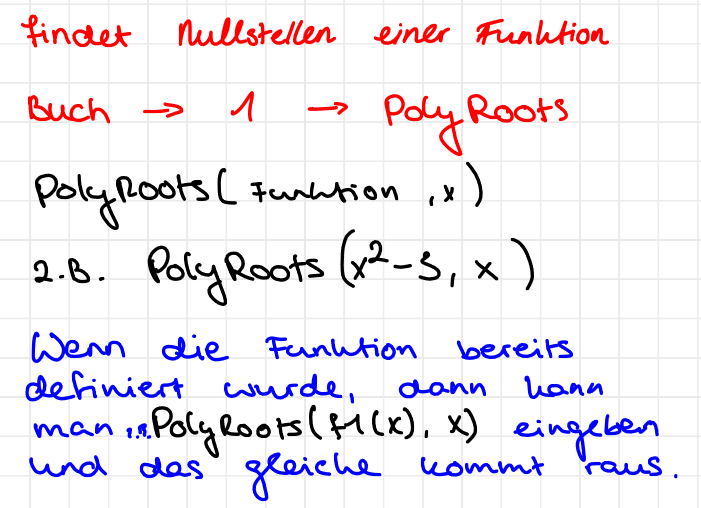 findet Nullstellen einer Funktion
Buch → 1 → PolyRoots
PolyRoots( Funktion , x )
z.B. PolyRoots (x²-3, x )
Wenn die Funktion bereits
definiert wurde, dann kann
man PolyRoots(f1(x), x) eingeben
und das gleiche kommt raus.